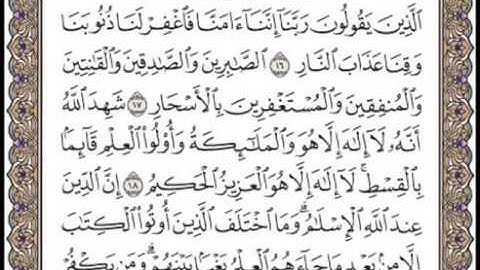 ٱلَّذِينَ يَقُولُونَ رَبَّنَآ إِنَّنَآ ءَامَنَّا فَٱغْفِرْ لَنَا ذُنُوبَنَا
وَقِنَا عَذَابَ ٱلنَّارِ ١٦ ٱلصَّـٰبِرِينَ وَٱلصَّـٰدِقِينَ وَٱلْقَـٰنِتِينَ
وَٱلْمُنفِقِينَ وَٱلْمُسْتَغْفِرِينَ بِٱلْأَسْحَارِ ١٧ شَهِدَ ٱللَّهُ
أَنَّهُۥ لَآ إِلَـٰهَ إِلَّا هُوَ وَٱلْمَلَـٰٓئِكَةُ وَأُو۟لُوا۟ ٱلْعِلْمِ قَآئِمًۢا
بِٱلْقِسْطِ لَآ إِلَـٰهَ إِلَّا هُوَ ٱلْعَزِيزُ ٱلْحَكِيمُ ١٨ إِنَّ ٱلدِّينَ
عِندَ ٱللَّهِ ٱلْإِسْلَـٰمُ ۗ وَمَا ٱخْتَلَفَ ٱلَّذِينَ أُوتُوا۟ ٱلْكِتَـٰبَ
إِلَّا مِنۢ بَعْدِ مَا جَآءَهُمُ ٱلْعِلْمُ بَغْيًۢا بَيْنَهُمْ ۗ وَمَن يَكْفُرْ